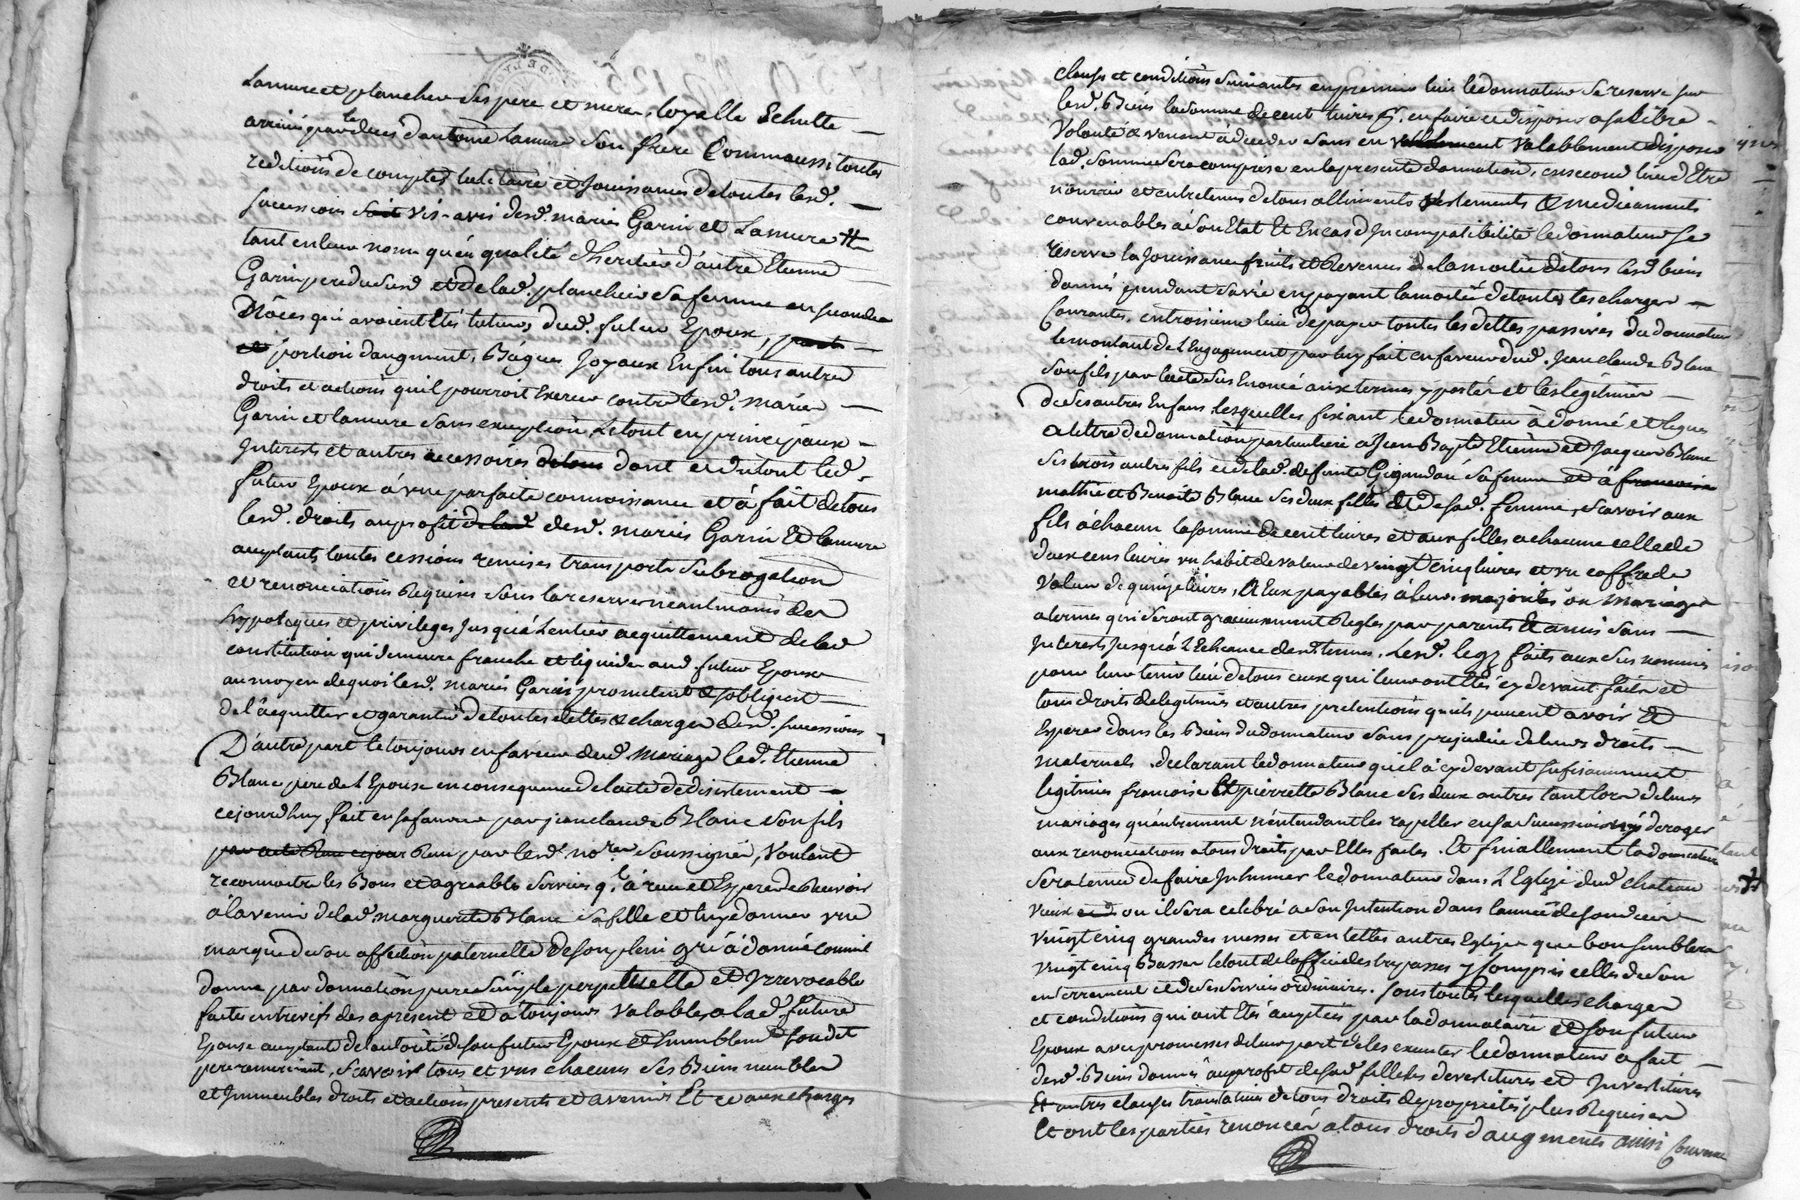 Lamure et planchier ses pere et mere, loyalle Echutte
arrivé par le deces d'antoine Lamure son frére Comme aussi toutes
redditions de comptes tutelaire et Jouissances de toutes lesd.
successions soit vis-avis desd. mariés Garin et Lamure
tant en leur nom qu'en qualité d'heritier d'autre Etienne
Garin pere dud et de lad. planchier sa femme en secondes
Nôces qui avoient Etés tuteurs dud. futur Epoux,
et portion d'augment, Bagues Joyaux Enfin tous autres
droits et actions qu'il pourroit Exercer contre lesd. mariés
Garin et lamure sans exception Le tout en principaux
Interests et autres accessoires de tous dont et du tout led.
futur Epoux á une parfaite connoissance et á fait de tous
lesd. droits au profit de lad desd. mariés Garin Et lamure
acceptants toutes cessions remises transports subrogation
et renonciations Requises sous la reserve néantmoins des
hypoteques et privileges Jusqu'á L'entier acquittement de lad
constitution qui demeure franche et liquide aud. futur Epoux
au moyen de quoi lesd. mariés Garin promettent & s'obligent
de l'acquitter et garantir de toutes dettes & charges desd. successions
D'autre part et toujours en faveur dud. Mariage led. Etienne
Blanc pere de L'Epouse en consequence de l'acte de desistement
cejourd'huy fait en sa faveur par jean claude Blanc son fils
par acte Reçu cejour Reçu par lesd. nores soussignés, Voulant
reconnoitre les Bons et agreables services q'l á reçu et Espere de Recevoir
á lavenir de lad. marguerite Blanc sa fille et luy donner une
marque de son affection paternelle de son plein gré á donné comme il
donne par donnation pure simple perpetuelle et Irrevocable
faite entre vifs des apresent et á toujours valable a lad. future
Epouse acceptante de l'autorité de son futur Epoux et humblement sond. et
pere remerciant, Scavoir tous et uns chacuns ses Biens meubles
et Immeubles droits et actions presents et avenirs Et ce aux charges
clauses et conditions suivantes en premier lieu le donnateur se reserve sur
lesd. Biens la somme de cent livres p. en faire et disposer a sa libre
Volonté & venant á deceder sans en vallablement valablement disposer
lad. somme sera comprise en la presente donnation, en second lieu d'Etre
nourris et entretenus de tous alliments vestements & medicaments
convenables á son Etat Et En cas d'Incompatibilité le donnateur se
réserve la Jouissance fruits et Revenus de la moitié de tous lesd. biens
donnés pendant sa vie en payant la moitié de toutes les charges
Courantes, en troisieme lieu de payer toutes les dettes passives du donnateur
le montant de L'Engagement par luy fait en faveur dud. Jean claude Blanc
son fils par l'acte sus Enoncé aux termes y portés et les légitimes
De ses autres Enfans lesquelles fixant le donnateur á donné et legue
a titre de donnation particuliere a Jean Bapte Etienne et Jacques Blanc
ses trois autres fils et de lad. defunte sa femme et á francoise
mathie et Benoite Blanc ses deux filles et de sad. femme, scavoir aux
fils á chacun la somme de cent livres et aux filles a chacune celle de
deux cens livres un habit de valeur de vingt cinq livres et un coffre de
valeur de quinze livres, le tout payables á leur majorité ou Mariage
a termes qui seront gracieusement Regles par parents Et amis sans
Interests Jusqu'á L'Echeance desd. termes. Lesd. legs faits aux sus nommés
pour leur tenir lieu de tous ceux qui leur ont Etés cy devant faits et
tous droits de legitimes et autres pretentions qu'ils peuvent avoir et
Esperer dans les Biens du donnateur sans prejudice de leurs droits
maternels. declarant le donnateur qu'il á cy devant suffisamment
legitimés francoise Et pierrette Blanc ses deux autres tant lors de leurs
mariages qu'autrement n'entendant les rapeller en sa succession ny deroger
aux renonciations a tous droits par Elles faites. Et finallement la donnataire
sera tenue de faire Inhumer le donnateur dans L'Eglize dud. chateau
vieux ou il sera celebré a son Intention dans l'année de son deces
vingt cinq grandes messes et en telles autres Eglizes que bon semblera
vingt cinq Basses le tout de l'office des trepasses y compris celles de son
enterrement et de ses services ordinaires. sous toutes lesquelles charges
et conditions qui ont Etés acceptées par la donnataire et son futur
Epoux avec promesses de leur part de les executer le donnateur a fait
desd. Biens donnés au profit de sad. fille les devestitures et Investitures
Et autres clauses translatives de tous droits de propriétés plus Requises
Et ont les parties renoncés a tous droits d'augments ainsi convenu